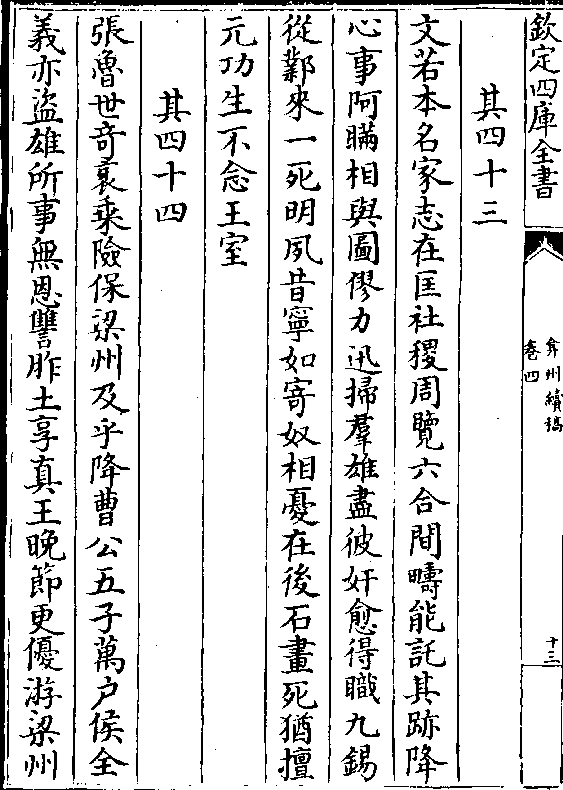 欽定四庫全書
弇州續稿
卷四
十三
其四十三
文若本名家志在匡社稷周覽六合間疇能託其跡降
心事阿瞞相與圖僇力迅掃羣雄盡彼奸愈得職九錫
從鄴來一死明夙昔寧如寄奴相憂在後石畫死猶擅
元功生不念王室
其四十四
張魯世奇袤乘險保梁州及乎降曹公五子萬户侯全
義亦盜雄所事無恩讐胙土享真王晚節更優游梁州